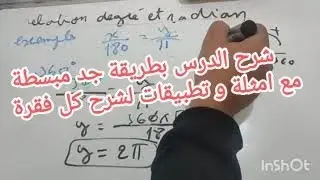 elation degré et radian
exemple x/180 = y/π
360°
شرح الدرس بطريقة جد مبسطة
مع امثلة و تطبيقات لشرح كل فقرة
y = 360π/18
y = 2π
InShOt